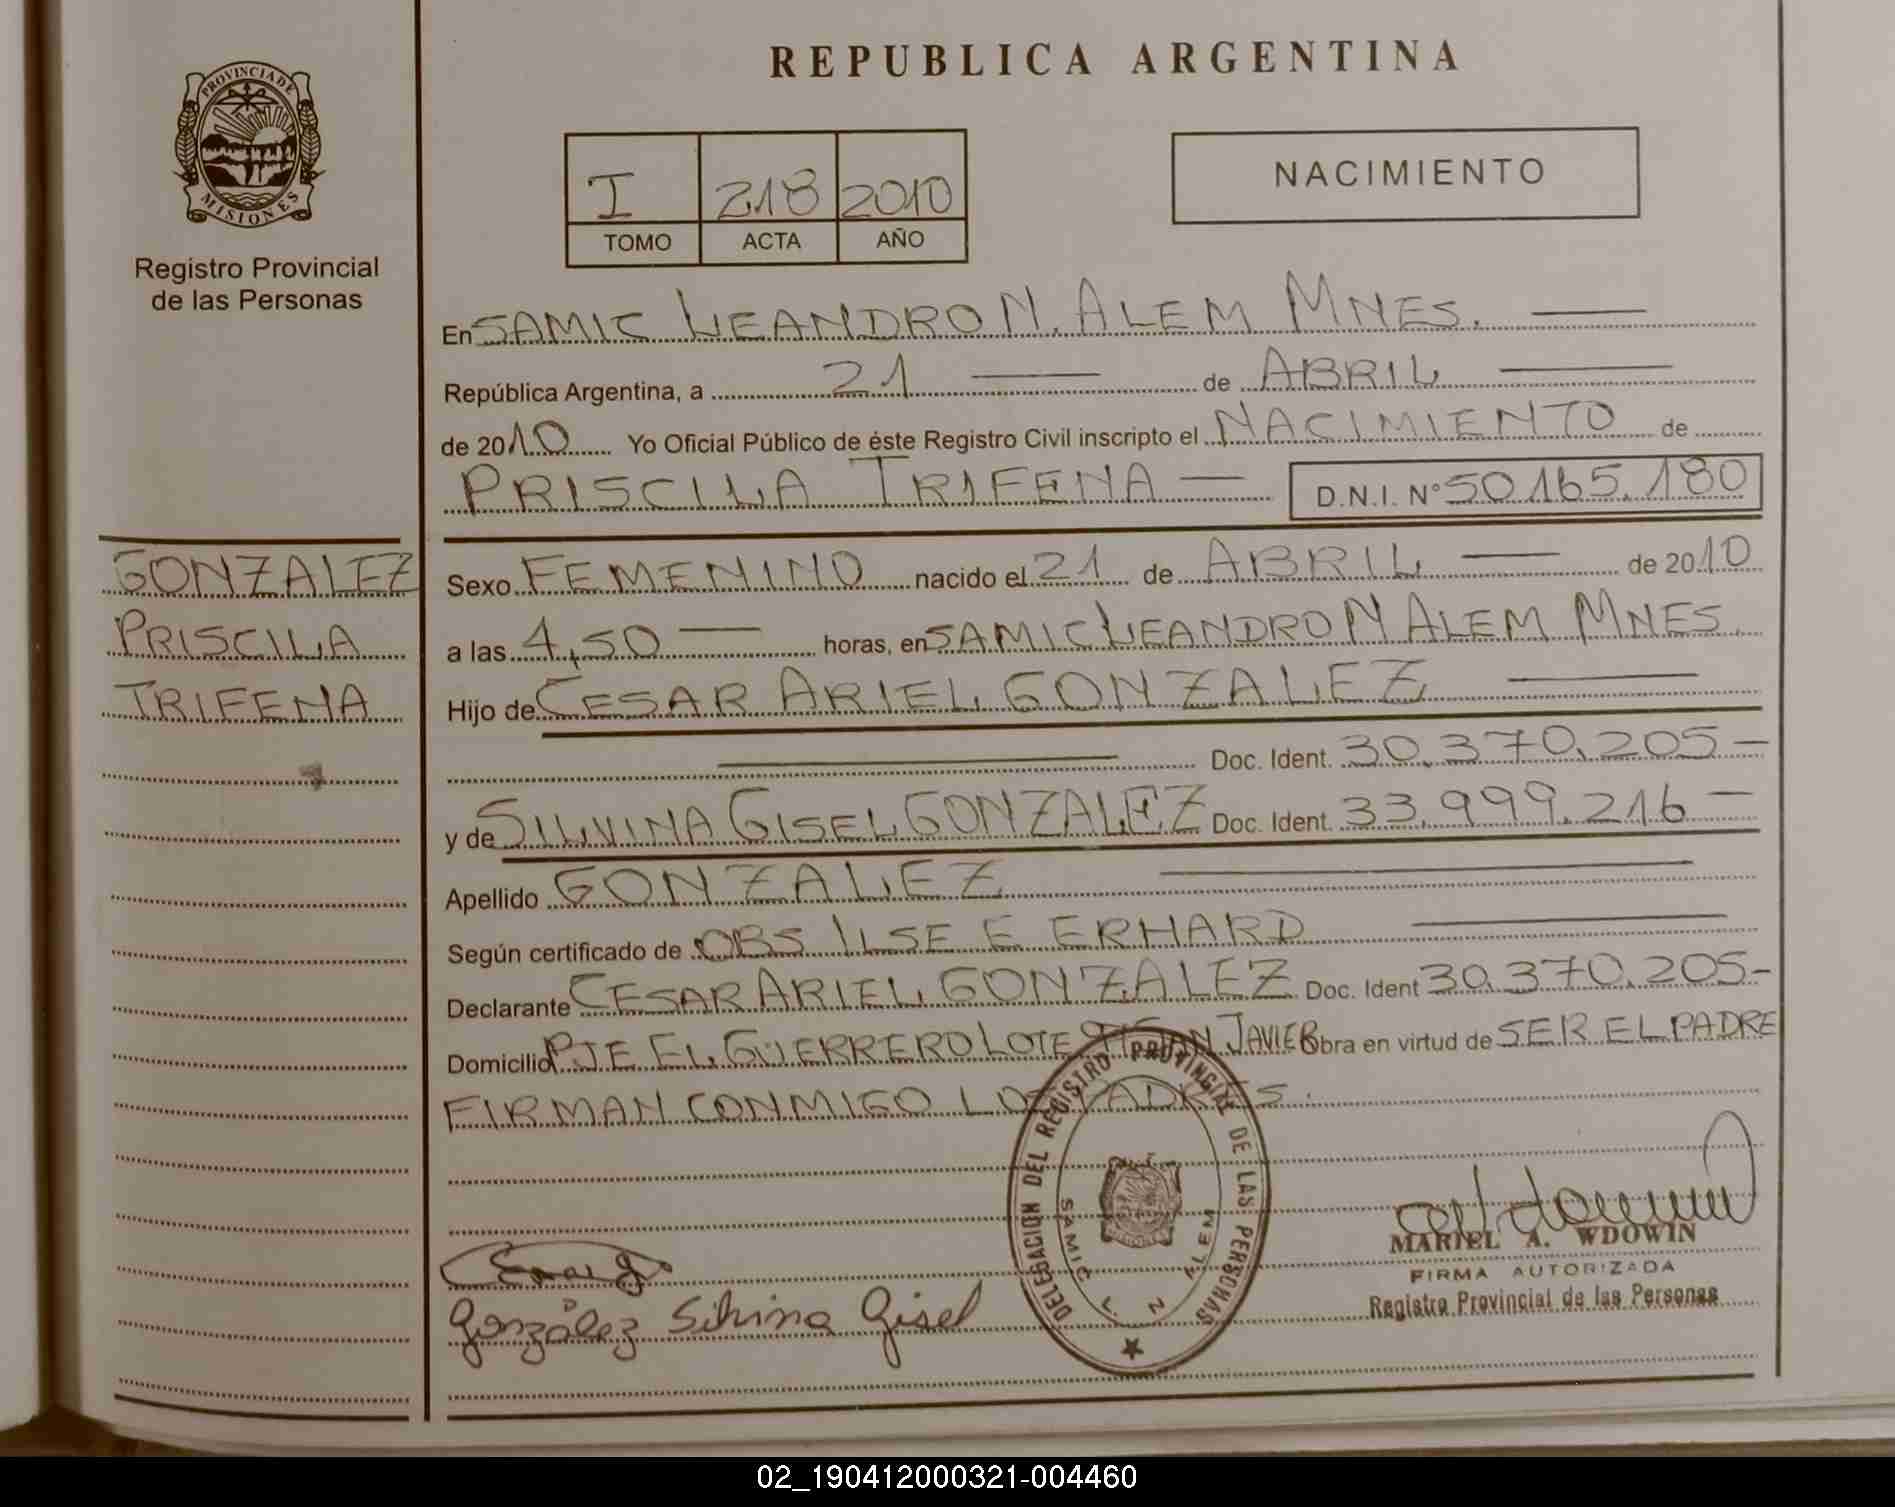 PROVINCIA DE
MISIONES
Registro Provincial
de las Personas
REPUBLICA ARGENTINA
I 218 2010
TOMO ACTA AÑO
NACIMIENTO
En SAMIC LEANDRO N. ALEM MNES.
República Argentina, a 21 de ABRIL
de 2010 Yo Oficial Público de éste Registro Civil inscripto el NACIMIENTO de
PRISCILA TRIFENA D.N.I. N° 50.165.180
GONZALEZ
PRISCILA
TRIFENA
Sexo FEMENINO nacido el 21 de ABRIL de 2010
a las 4,50 horas, en SAMIC LEANDRO N ALEM MNES.
Hijo de CESAR ARIEL GONZALEZ
Doc. Ident. 30.370.205-
y de SILVINA GISEL GONZALEZ Doc. Ident. 33.999.216-
Apellido GONZALEZ
Según certificado de OBS ILSE E ERHARD
Declarante CESAR ARIEL GONZALEZ Doc. Ident 30.370.205-
Domicilio PJE EL GUERRERO LOTE JAVIER Obra en virtud de SER EL PADRE
FIRMAN CONMIGO LOS PADRES.
DELEGACION DEL REGISTRO PROVINCIAL DE LAS PERSONAS
SAMIC L. N. ALEM
MARIEL A. WDOWIN
FIRMA AUTORIZADA
Registro Provincial de las Personas
González Silvina Gisel
02_190412000321-004460